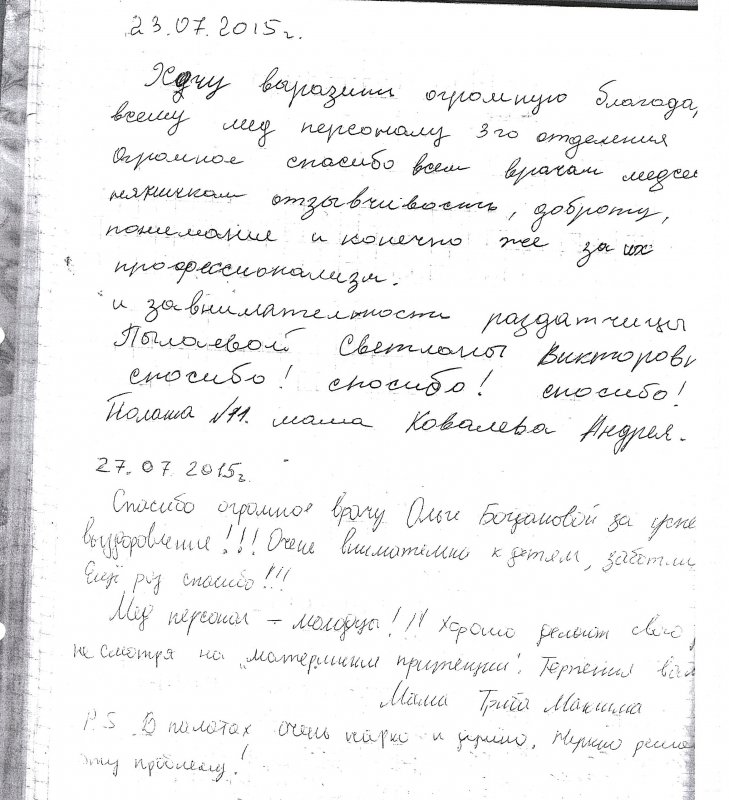 23.07.2015г.
Хочу выразить огромную благода,
всему мед персоналу 3го отделения
Огромное спасибо всем врачам медсе
няничкам отзывчивость, доброту,
понимание и конечно же за их
профессионализм.
и за внимательности раздатчицы
Пылаевой Светланы Викторовн
спасибо! спасибо! спасибо!
Полата №11. мама Ковалева Андрея.
27.07.2015г.
Спасибо огромное врачу Ольге за успе
выздоровление!!! Очень внимательна к детям, заботли
Ещё раз спасибо!!!
Мед персонал – молодцы!!! Хорошо делают свою
не смотря на „материнские притенции". Терпения вам
Мама Максима
P.S. В палатах очень жарко и душно. Нужно реша
эту проблему!